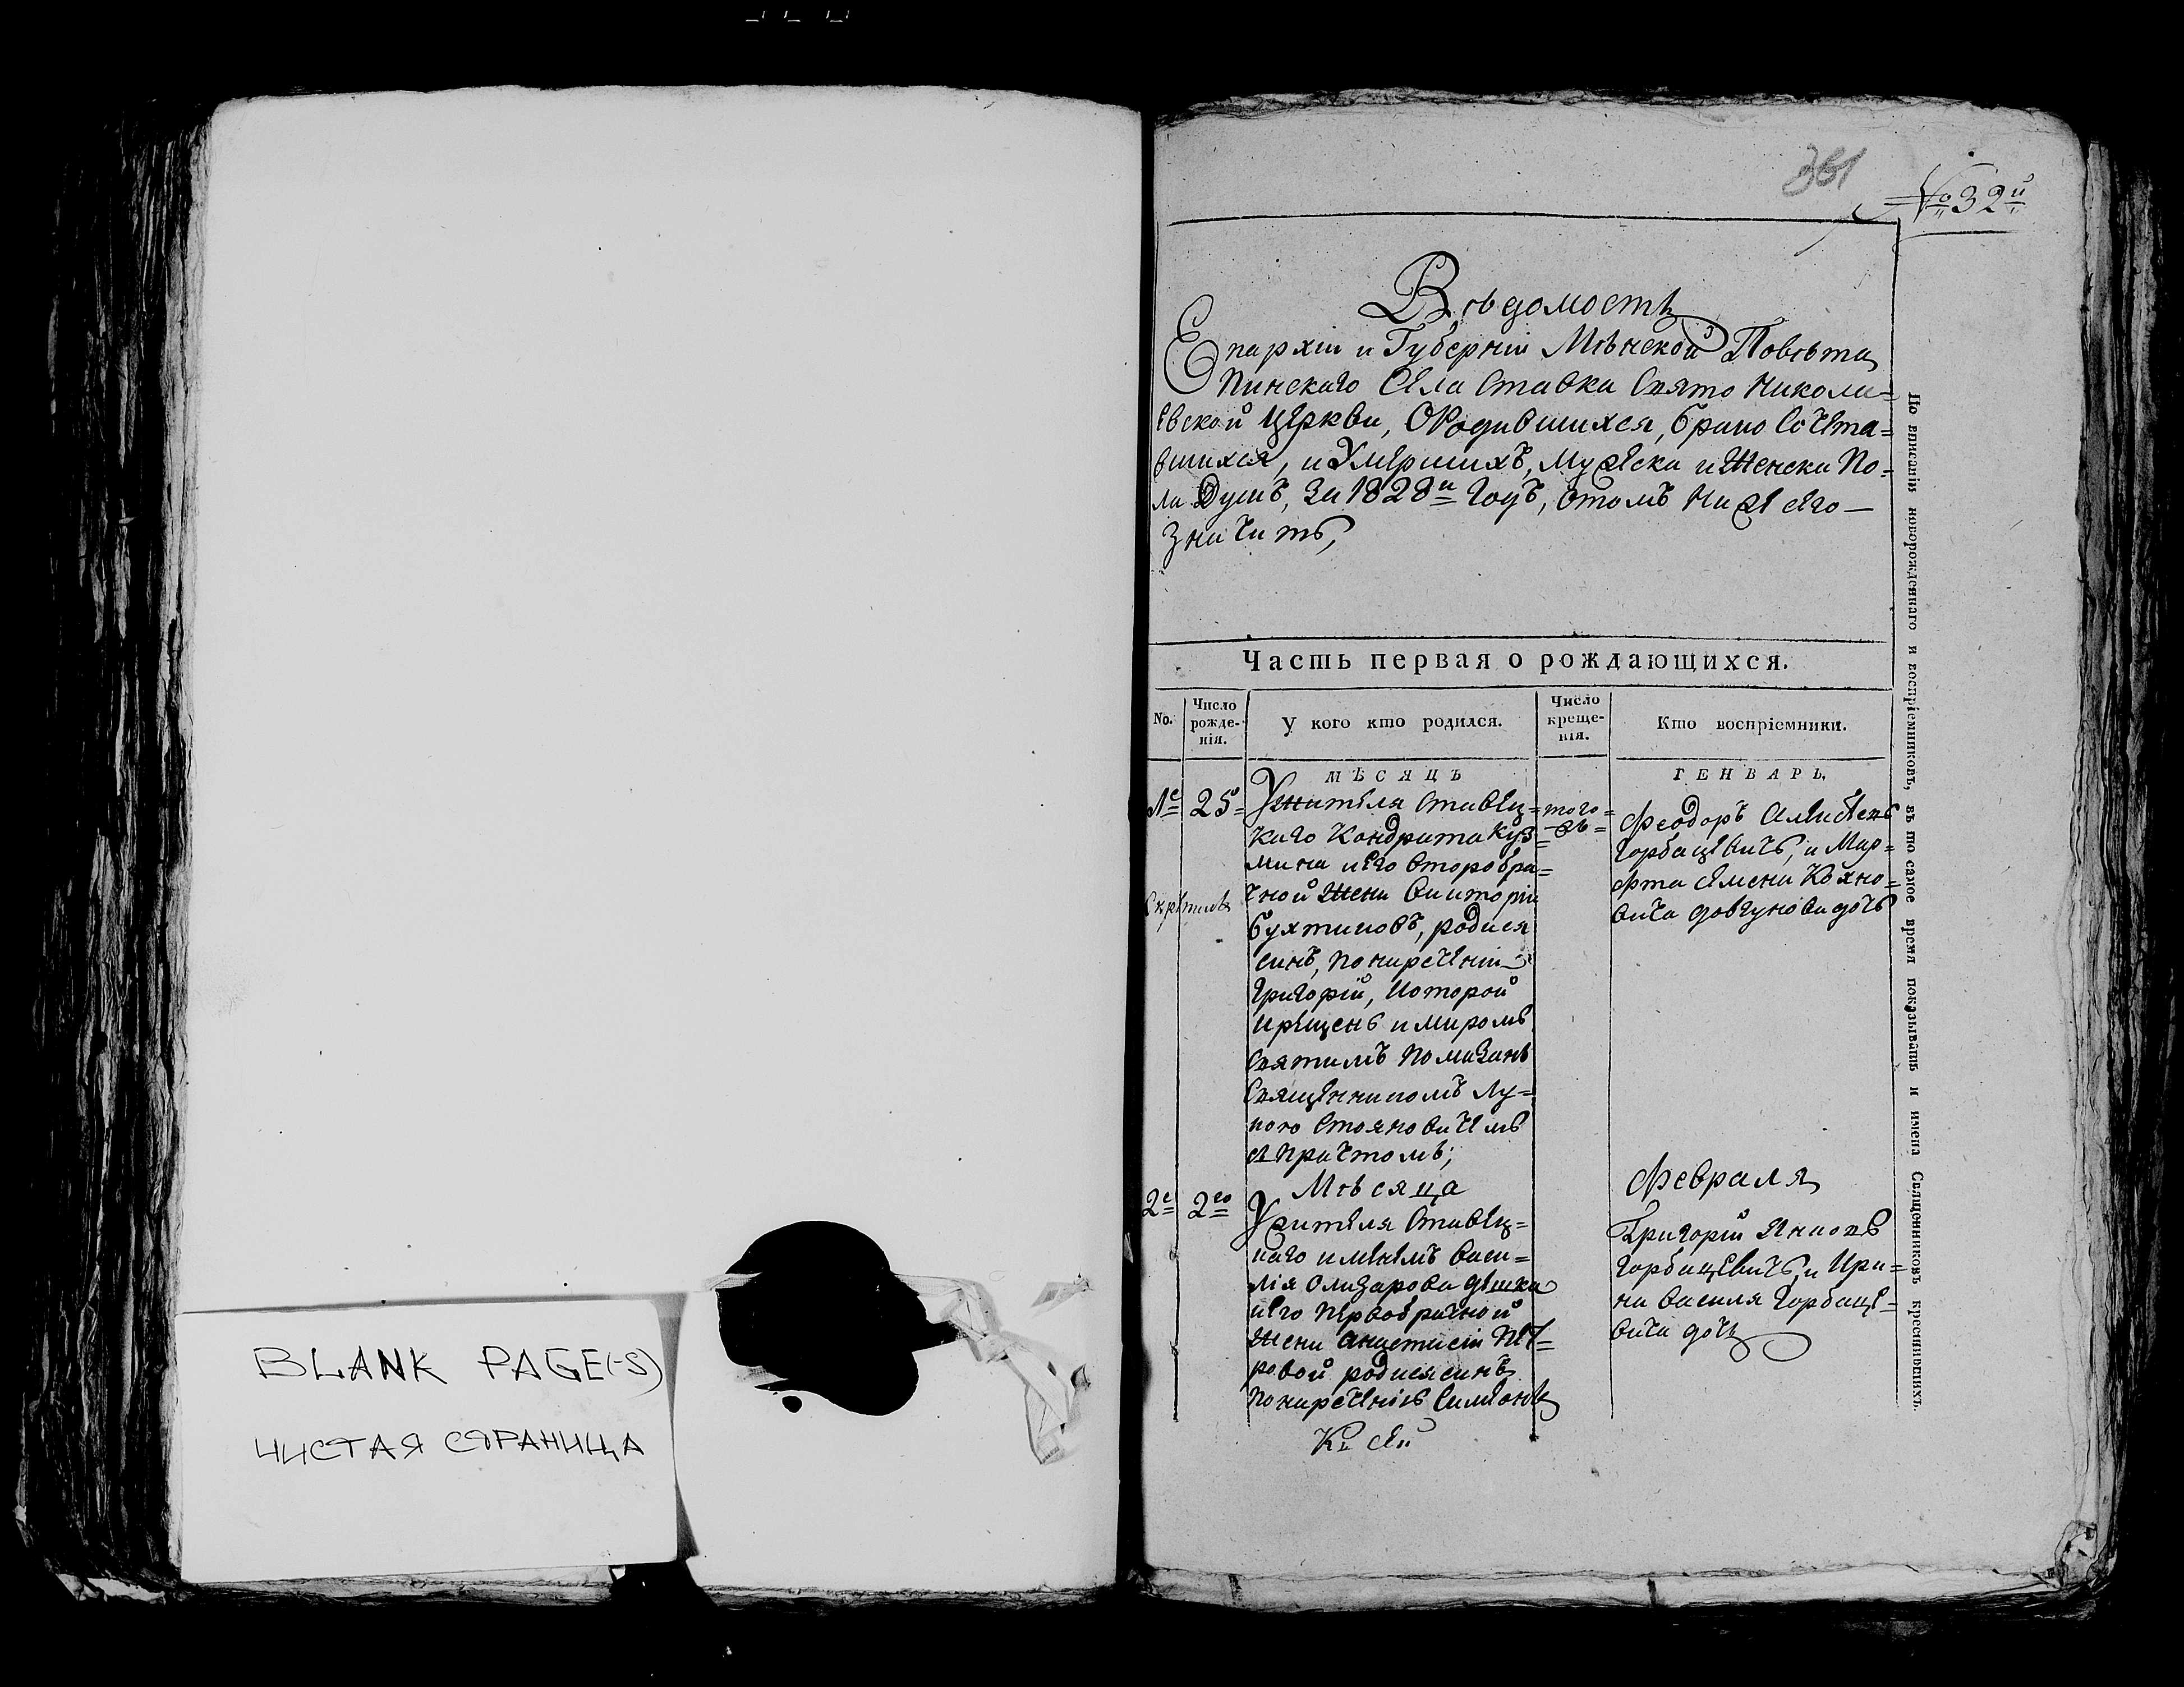 BLANK PAGE(-S)
ЧИСТАЯ СТРАНИЦА
361
№ 32й
Вѣдомость
Епархіи и Губерніи Мѣнской Повѣта
Пинскаго Села Ставка Свято Никола=
евской Церкви, О Родившихся, брако Сочета=
вшихся, и Умершихъ, мужеска и Женска По=
ла Душъ, За 1828й Годъ, о томъ Ниже сего—
Значитъ,
Часть первая о рождающихся.
No. Число рожде-нія. У кого кто родился. Число креще-нія. Кто воспріемники.
МѢСЯЦЪ ГЕНВАРЬ.
1е 25о=
Жителя Ставец=
каго Кондрата Куз=
мина и его второбра=
чной Жени
родися
синъ, по наречении
Григорій, которой
крещенъ и миромъ
Святимъ Помазанъ
Священникомъ Лу=
кою Стояновичемъ
съ Причтомъ;
того=
жъ=
Феодоръ
Горбацевичъ, и Мар=
фта Семена Кохно=
вича дочъ
Мѣсяца Февраля
2е 2го
Жителя Ставец=
каго именемъ Васи=
лія Олизарова
и его Первобрачной
Жени Анастасіи Пет=
ровой родися синъ
по нареченію Симеонъ
Григорій
Горбацевичъ, и Ири=
на Василя Горбаце=
вича дочь
По вписаніи новорожденнаго и воспріемниковъ, въ то самое время показывать и имена Священниковъ крестившихъ.